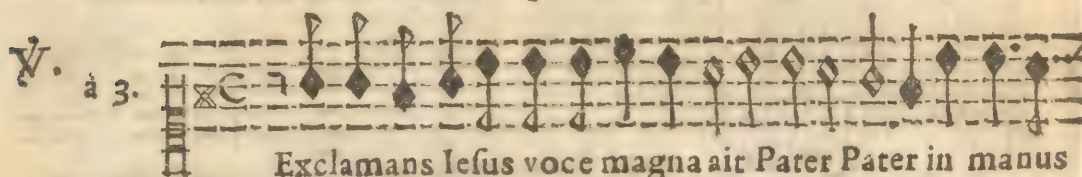 ℣.
à 3.
Exclamans Ieſus voce magna ait Pater Pater in manus